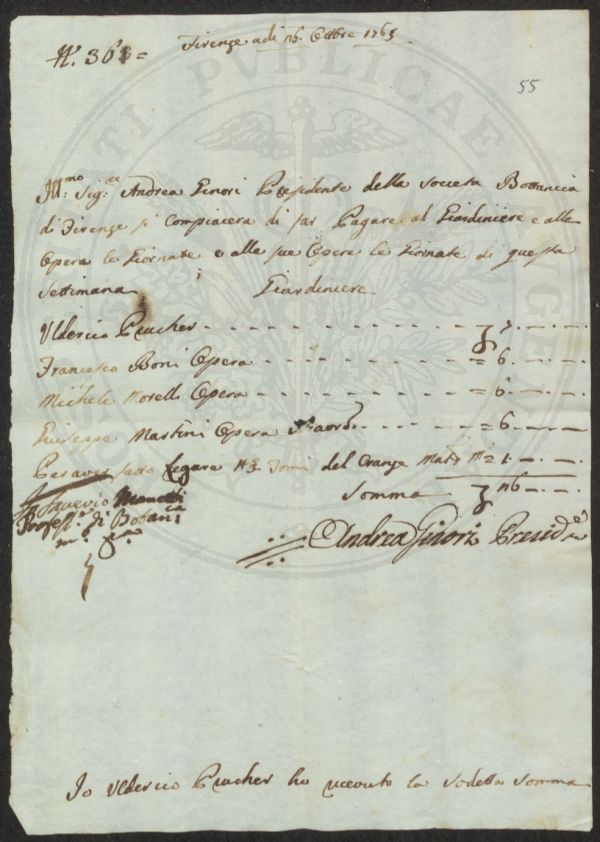 N.° 361=
Firenze adi 26. Ottbre 1765
55
Ill:mo Sig:re Andrea Ginori Presidente della Societa Botanica
di Firenze si Compiacera di far Pagare al Giardiniere e alle
Opera le Giornate e alle sue Opere le Giornate di questa
Settimana
Giardiniere
Ulderico Prucher 7.
Francesco Boni Opera = 6.
Michele Morelli Opera = 6.
Giuseppe Martini Opera 6.
Per aver fatto Legare N 3. Tomi del 1.
Somma 26
Saverio Manetti
Profess.e di Botanica
Andrea Ginori Presid.e
Io Ulderico Prucher ho riceuto la Sodetta Somma